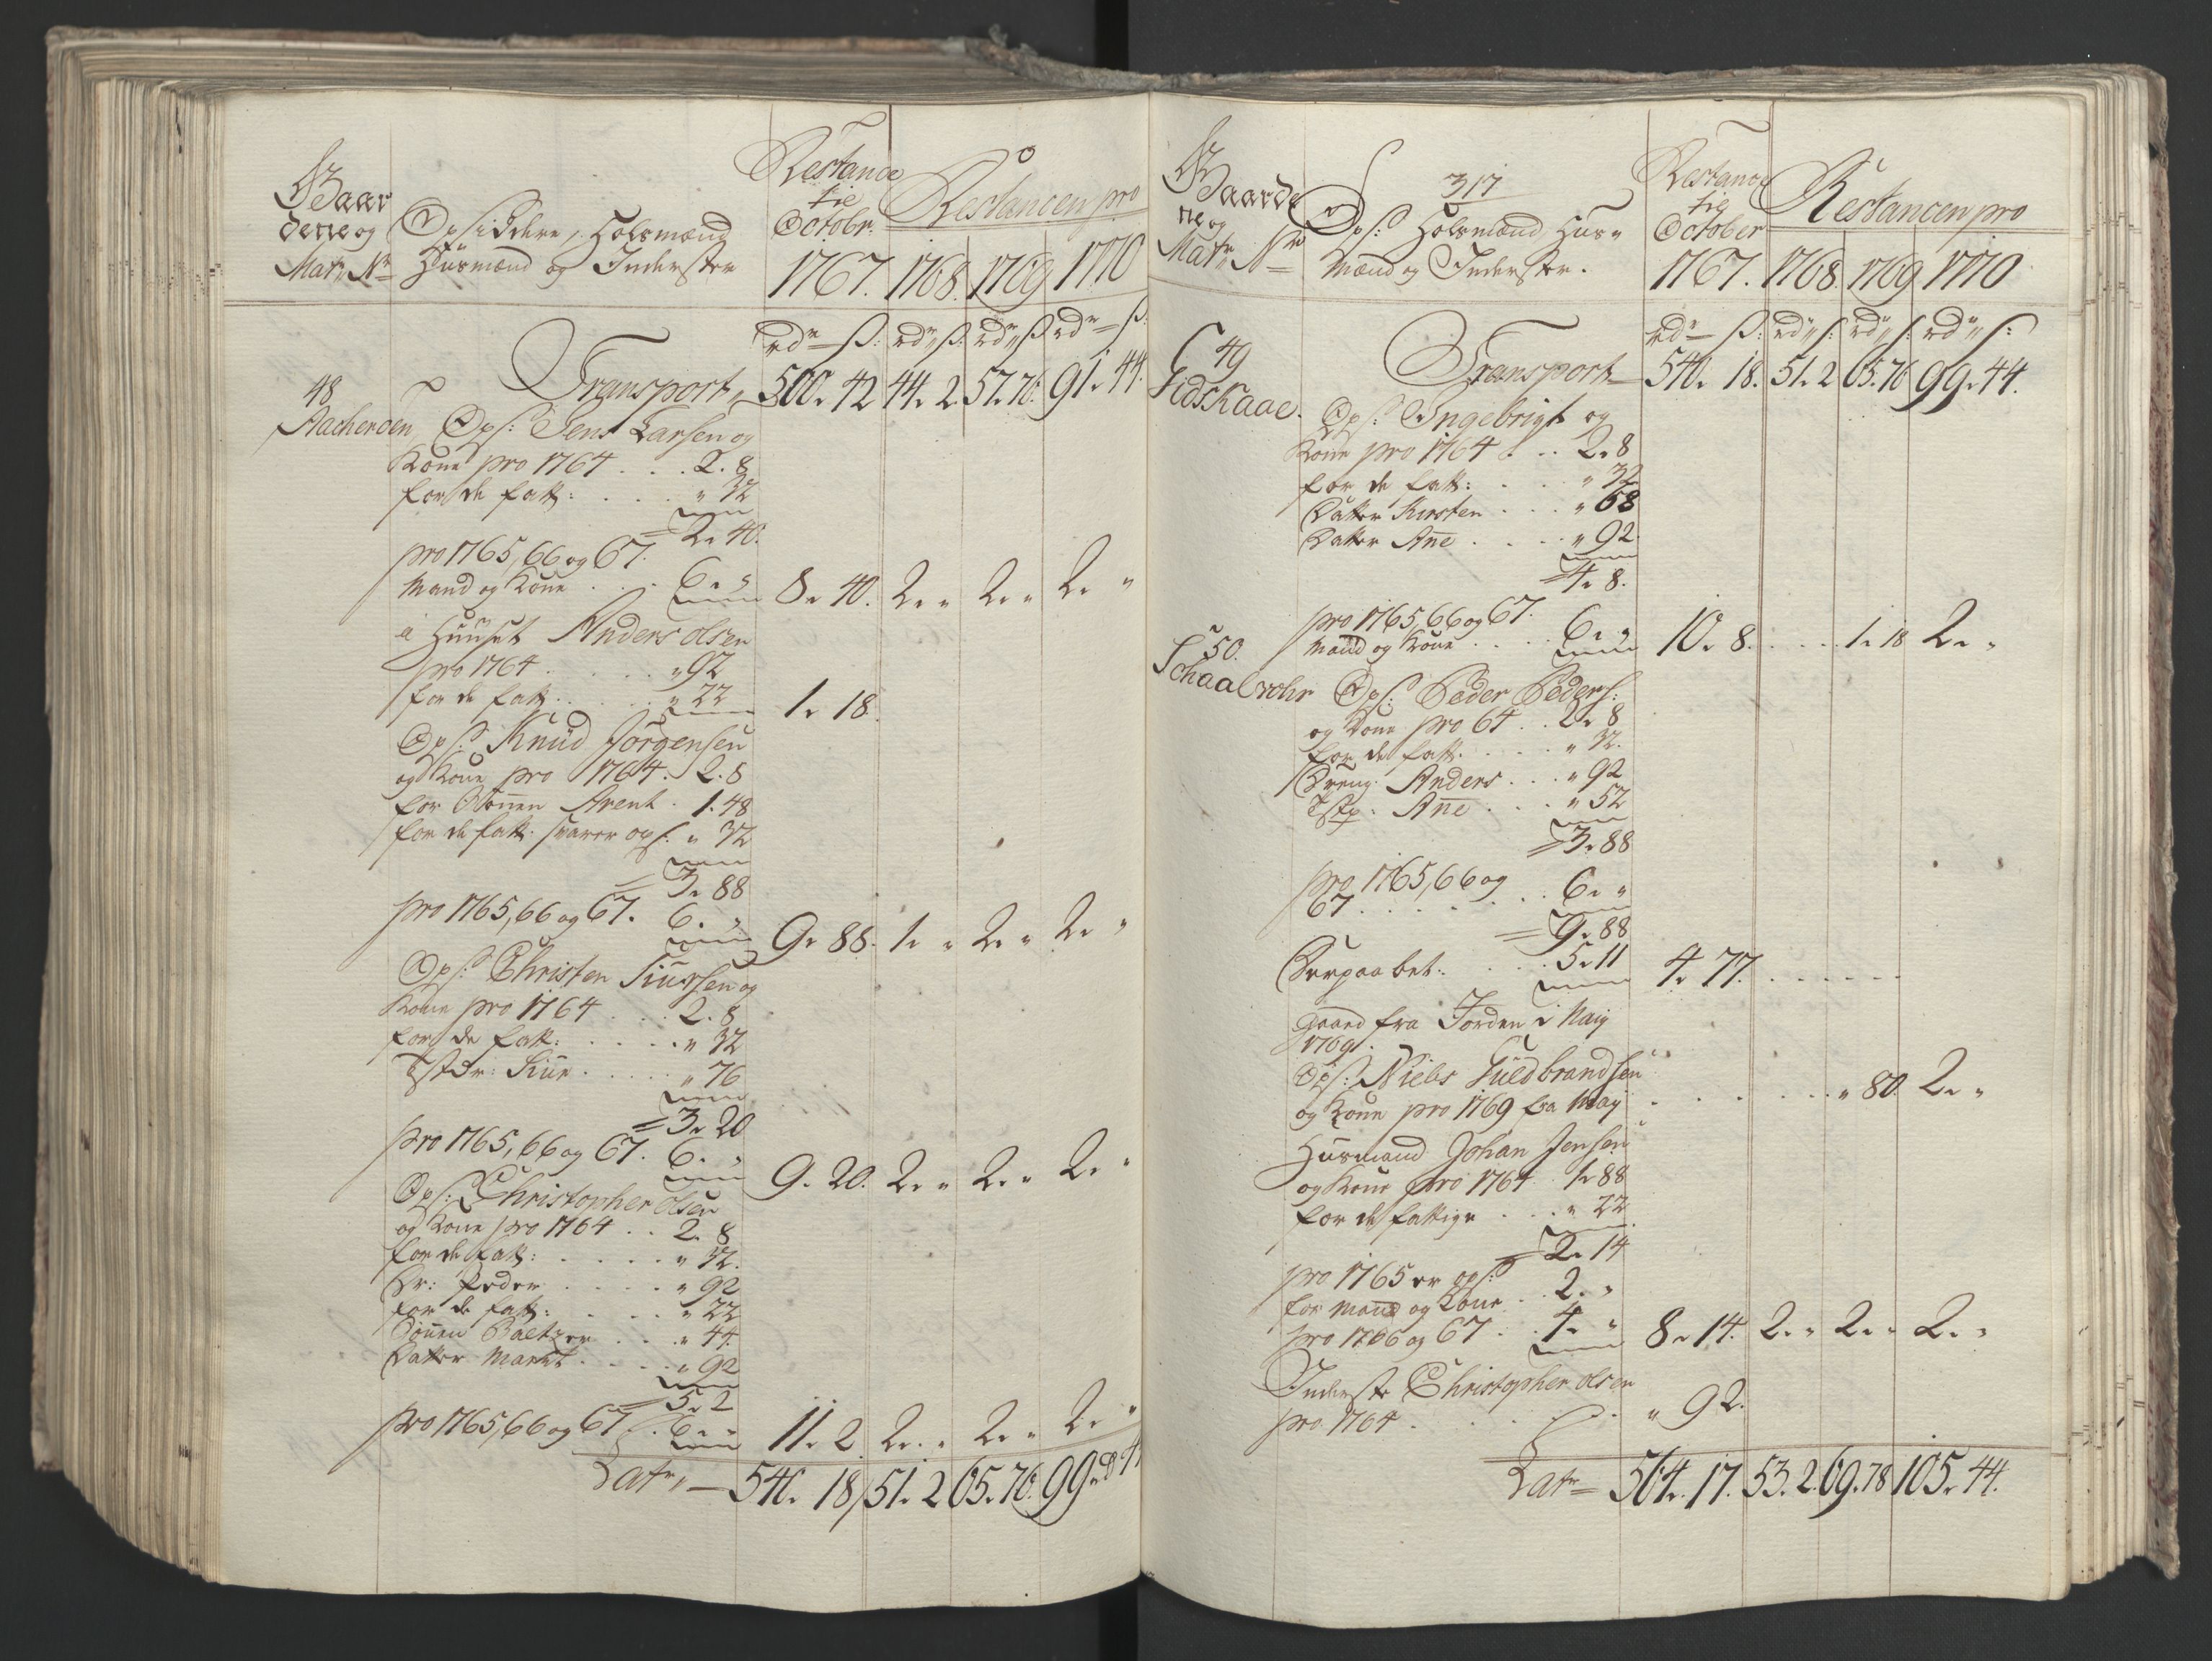 Gaar
dene og
Matr: No
Opsiddere, Holsmænd
Huusmænd og Inderster
Restance
til
Octobr.
1767.
Restancen pro
1768. 1769 1770
rdr ß: rdr ß: rdr ß rdr ß:
Transport 500. 42 44. 2. 57. 76. 91. 44.
48
Aacheroen
Ops: Jens Larsen og
Kone pro 1764 . . . 2. 8
for de fatt: . . . " 32
2. 40.
pro 1765, 66 og 67.
Mand og Kone . . . 6. " 8. 40. 2. " 2. " 2. "
i Huuset Anders Olsen
pro 1764 . . . . " 92
for de fatt. . . . " 22 1. 18.
Ops: Knud Jörgensen
og Kone pro 1764. 2. 8
for Sönnen Arent . 1. 48
for de fatt. svarer ops. " 32
3. 88
pro 1765, 66 og 67. 6. " 9. 88. 1. " 2. " 2. "
Ops: Christen Siursen og
Kone pro 1764 . . . 2. 8
for de fatt: . . . . " 32
Tstdr: Siur . . . . " 76
3. 20
pro 1765, 66 og 67. 6. " 9. 20. 2. " 2. " 2. "
Ops: Christopher Olsen
og Kone pro 1764 . . 2. 8
for de fatt: . . . . " 32.
Dr: Peder . . . . " 92
for de fatt: . . . . " 22
Sönen Baltzer . . . " 44.
Datter Maret . . . . " 92
5. 2
pro 1765, 66 og 67 . 6. " 11. 2 2. " 2. " 2. "
Latr. 540. 18 51. 2 65. 76. 99. 44
317
Gaarde
ne og
Matr. No
Ops: Holsmænd Hus-
mænd og Inderster.
Restance
til
October
1767.
Restancen pro
1768. 1769 1770
rdr ß: rdr ß: rdr ß: rdr ß:
Transport 540. 18. 51. 2 65. 76 99. 44.
49
Fidskaae.
Ops: Ingebrigt og
Kone pro 1764 . . . 2. 8
for de fatt: . . . " 32
Datter Kirsten . . . " 68
Datter Ane . . . . " 92
4. 8.
pro 1765, 66 og 67.
Mand og Kone . . . 6. " 10. 8. . . . . 1. 18 2. "
50.
Schaalvohr
Ops: Peder Peders:
og Kone pro 64 . . 2. 8
for de fatt. . . . . " 32.
Dreng: Anders . . . " 92
Tstp. Ane . . . . " 52
3. 88
pro 1765, 66 og
67 . . . . . . . . 6. "
9. 88
Derpaa bet: . . . . 5. 11 4. 77. . . . . . .
Gaard fra Jorden i Maij
1769.
Ops: Niels Guldbrandsen
og Kone pro 1769 fra Maij . . . . . . " 80. 2. "
Husmand Johan Jensen
og Kone pro 1764 1. 88
for de fattige . . . " 22
2. 14
pro 1765 er ops:
for Mand og Kone . . 2. "
pro 1766 og 67 . . 4. " 8. 14. 2. " 2. " 2. "
Inderste Christopher Olsen
pro 1764 . . . . . . " 92.
Latr 564. 17. 53. 2. 69. 78 105. 44.